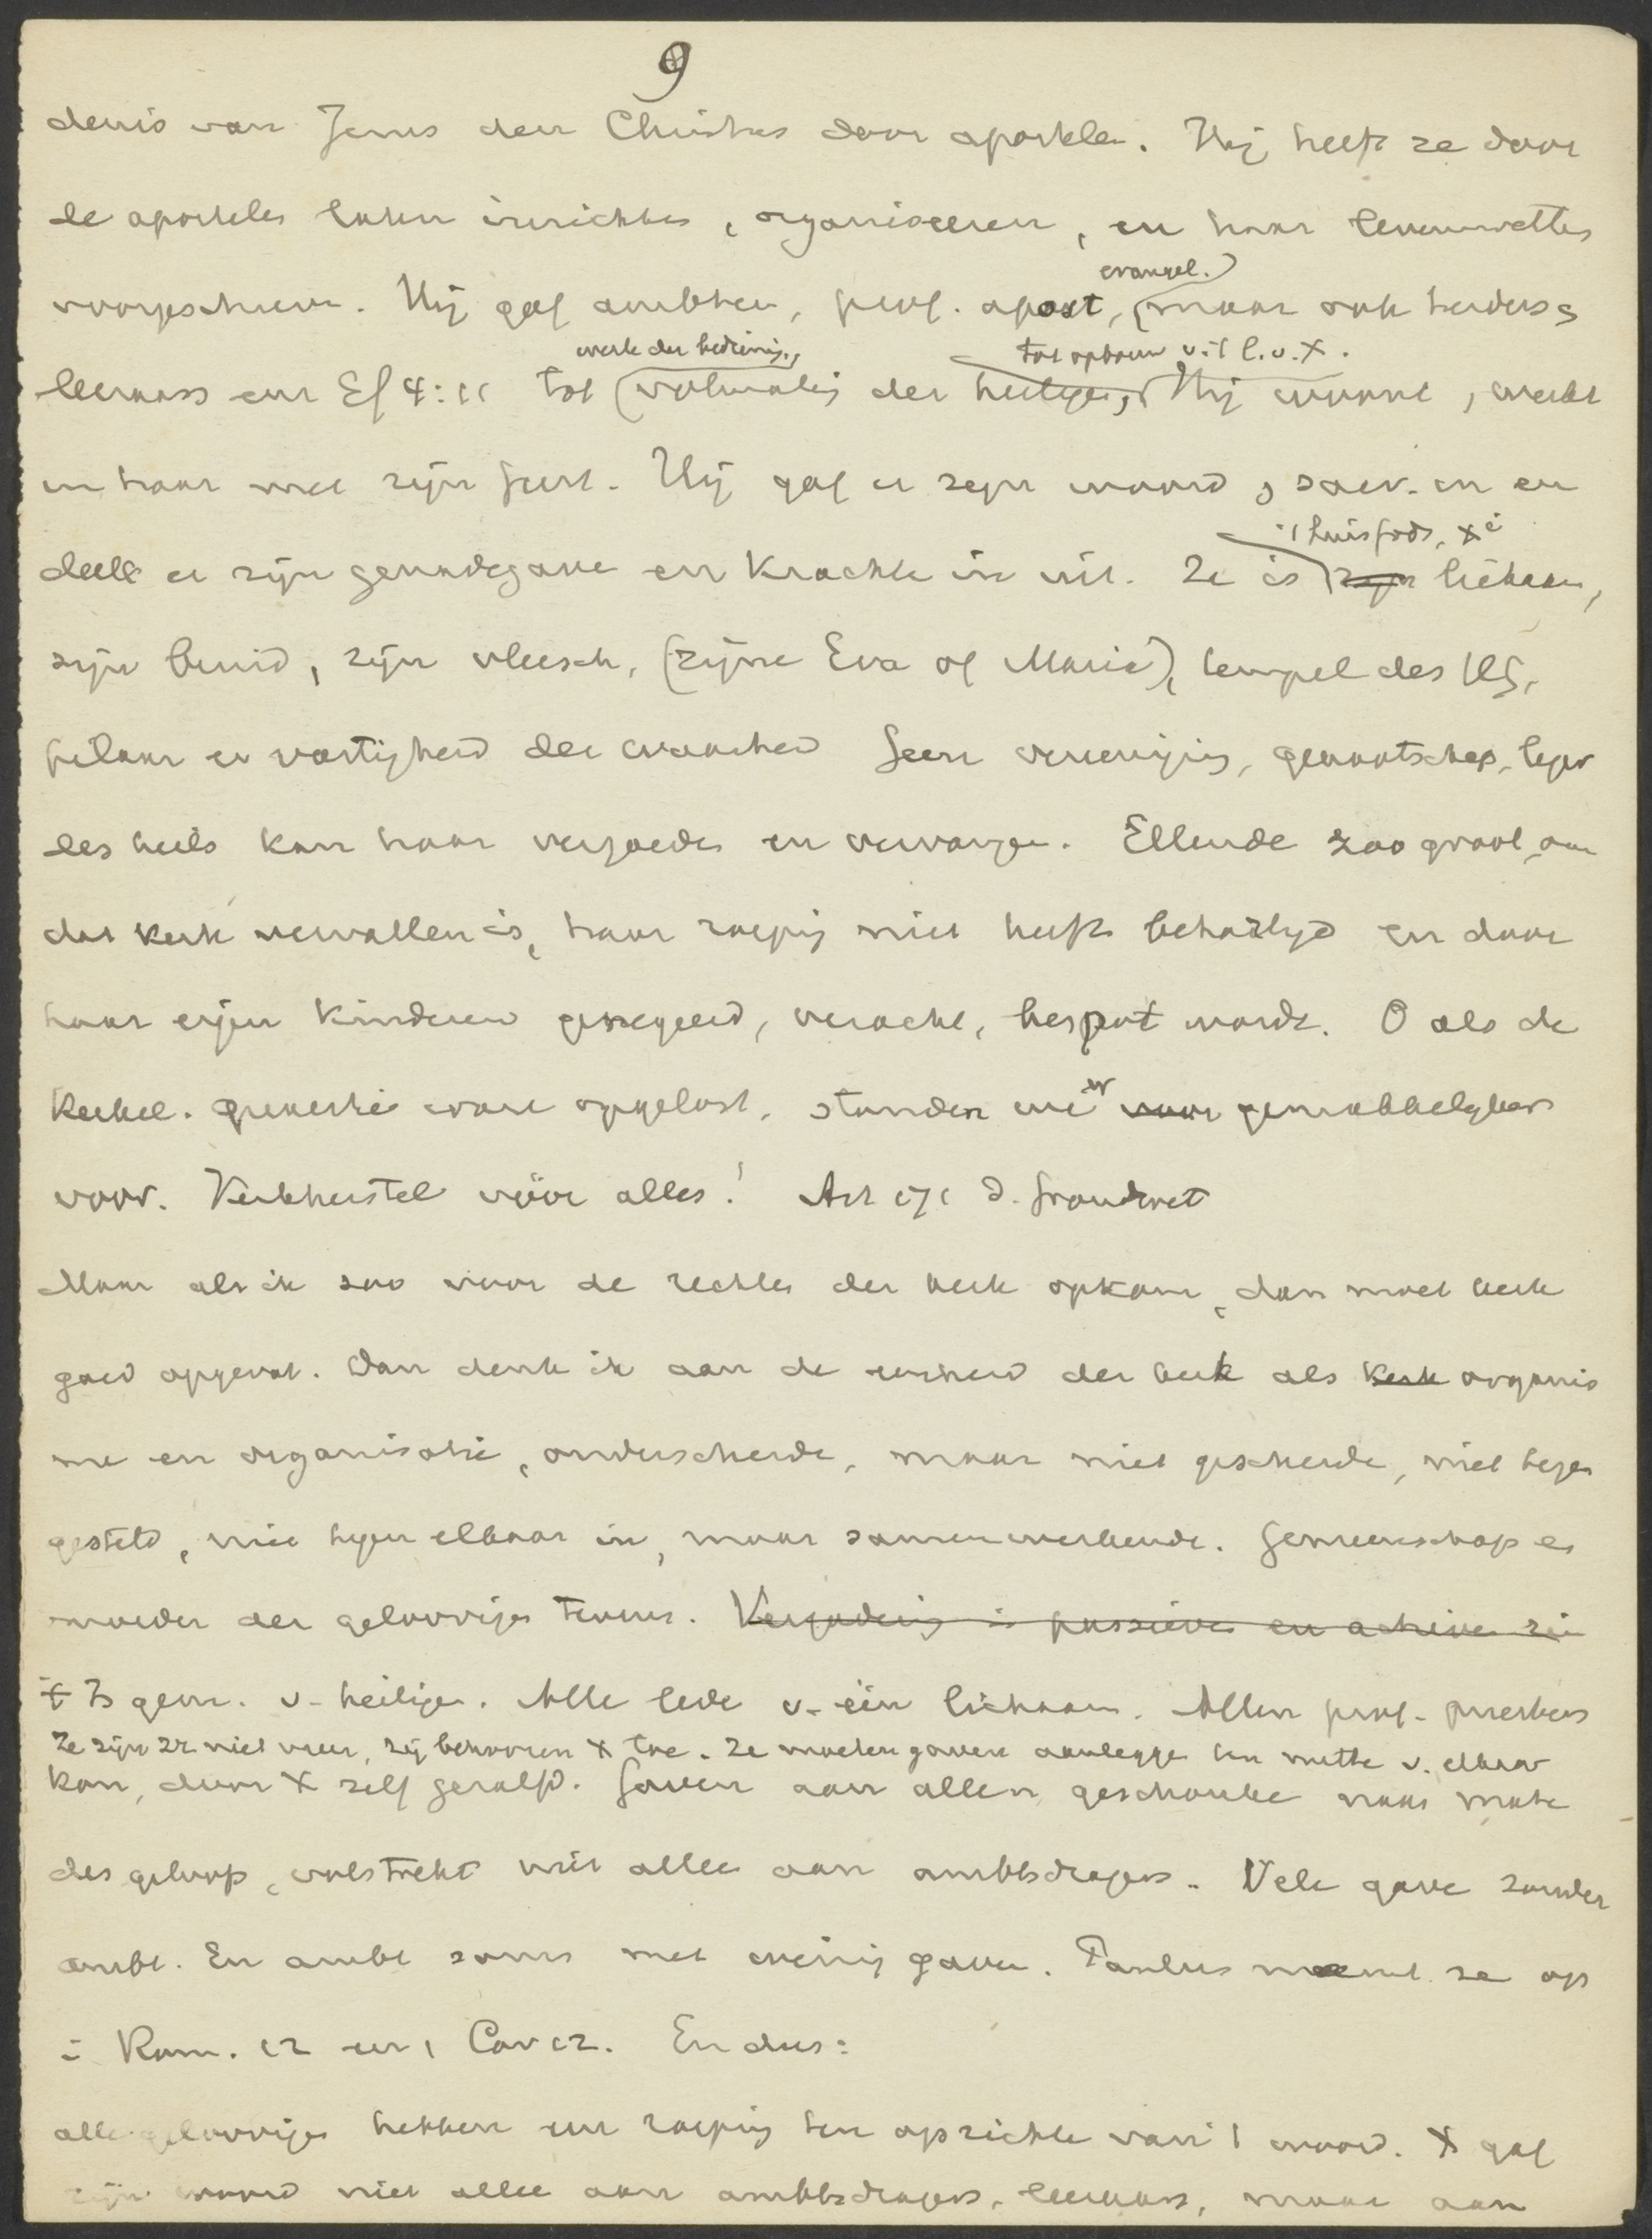 9
denis van Jezus den Christus door apostelen. Hij heeft ze door
de apostelen laten inrichten, organiseeren, en haar levenswetten
evangel.)
voorgeschreven. Hij gaf ambten, prof. apost, (maar ook herders &
werk der bediening, tot opbouw v. 't l. v. X.
leeraars enz Ef 4:11 tot (volmaking der heiligen, Hij woont, werkt
in haar met zijn Geest. Hij gaf er zijn woord, sacr. in en
't huis Gods, X i
deelt er zijn genadegave en krachten in uit. Ze is zijn lichaam,
zijn bruid, zijn vleesch, (zijne Eva of Maria), tempel des HG,
pilaar en vastigheid der waarheid Geen vereeniging, genootschap, leger
des heils kan haar vergoeden en vervangen. Ellende zoo groot, om
dat kerk vervallen is, haar roeping niet heeft behartigd en door
haar eigen kinderen genegeerd, veracht, bespot wordt. O als de
kerkel. quaestie ware opgelost, stonden we er voor gemakkelijker
voor. Kerkherstel vóór alles! Art 171 d. Grondwet
Maar als ik zoo voor de rechten der kerk opkom, dan moet kerk
goed opgevat. Dan denk ik aan de eenheid der kerk als kerk organis
me en organisatie, onderscheiden, maar niet gescheiden, niet tegen
gesteld, niet tegen elkaar in, maar samenwerkende. Gemeenschap en
moeder der geloovigen tevens. Vergadering in passieven en actieven zin
± Is gem. v. heiligen. Alle leden v. één lichaam. Allen prof. priesters
Ze zijn zr niet meer, zij behooren X toe. Ze moeten gaven aanleggen ten nutte v. elkaar
kon, door X zelf gezalfd. Gaven aan allen geschonken naar mate
des geloofs, volstrekt niet alleen aan ambtsdragers. Vele gaven zonder
ambt. En ambt soms met weinig gaven. Paulus noemt ze op
in Rom. 12 en 1 Cor 12. En dus:
alle geloovigen hebben een roeping ten opzichte van 't woord. X gaf
zijn woord niet alleen aan ambtsdragers, leeraars, maar aan